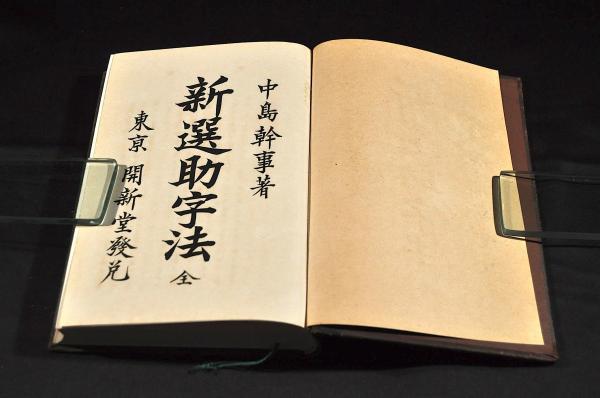 中島幹事著
新選助字法 全
東京 開新堂發兌